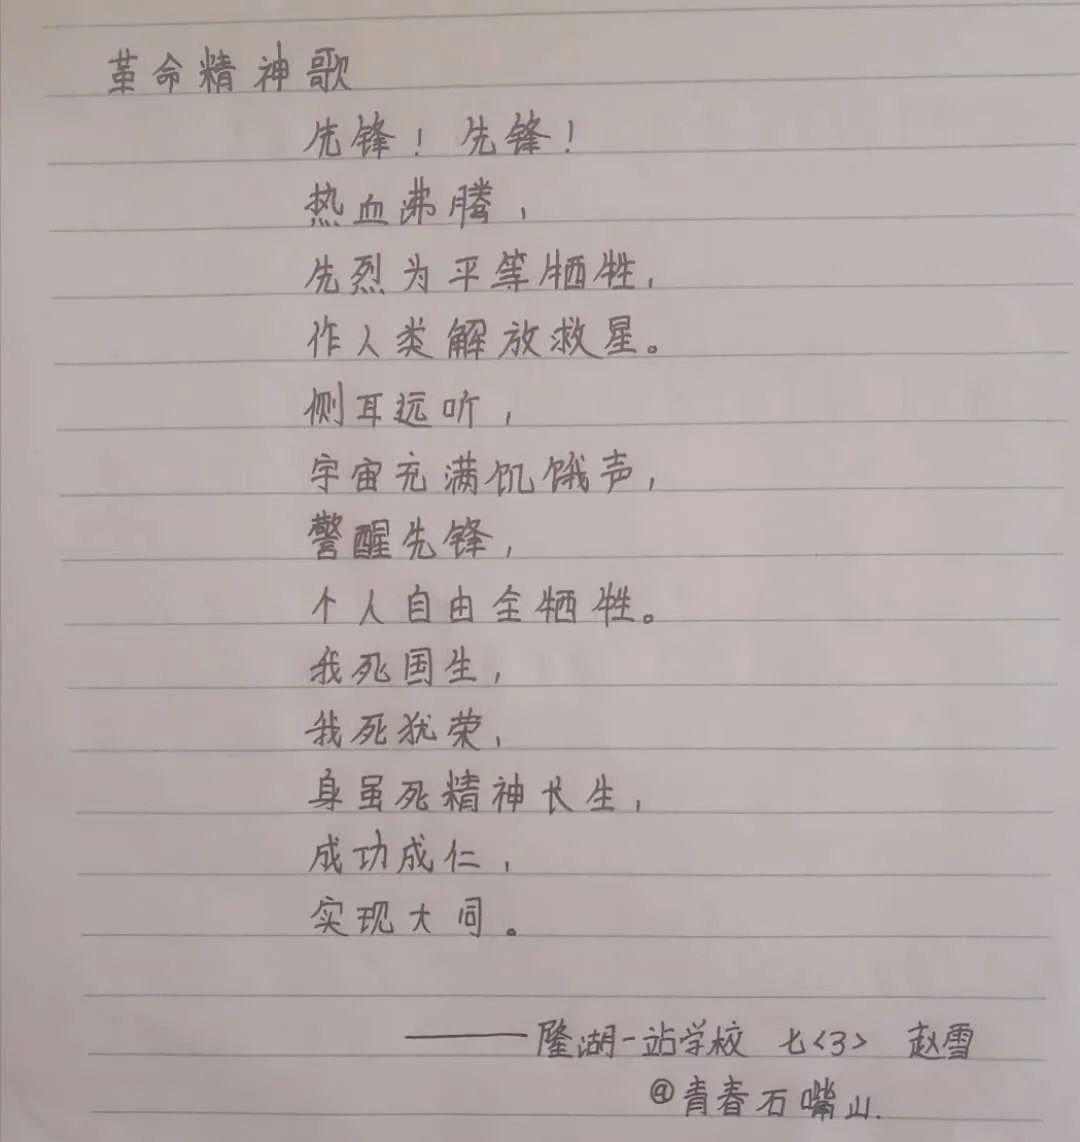 革命精神歌
先锋！先锋！
热血沸腾，
先烈为平等牺牲，
作人类解放救星。
侧耳远听，
宇宙充满饥饿声，
警醒先锋，
个人自由全牺牲。
我死国生，
我死犹荣，
身虽死精神长生，
成功成仁，
实现大同。
——隆湖一站学校 七<3> 赵雪
@青春石嘴山.